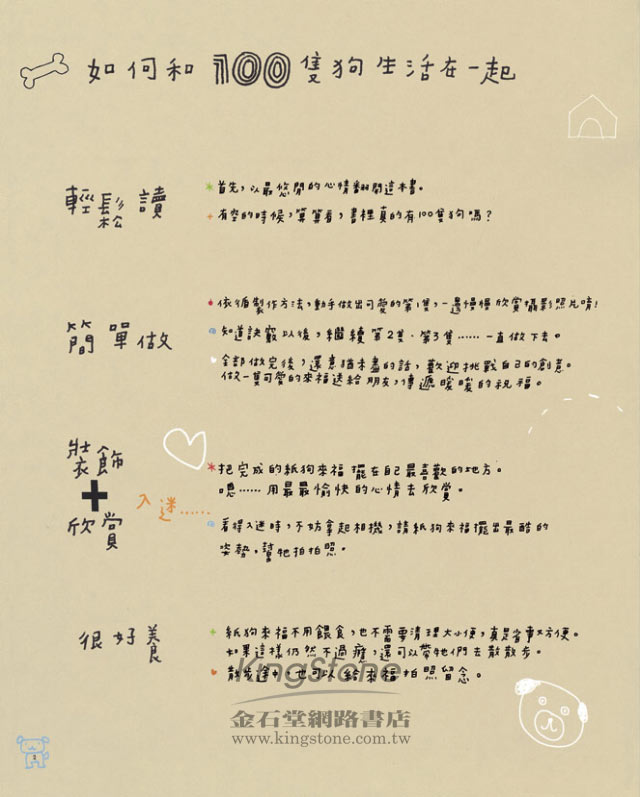 如何和100隻狗生活在一起
輕鬆讀
首先，以最悠閒的心情翻開這本書。
有空的時候，算算看，書裡真的有100隻狗嗎？
簡單做
依循製作方法，動手做出可愛的第1隻，一邊慢慢欣賞攝影照片唷！
知道訣竅以後，繼續第2隻、第3隻……一直做下去。
全部做完後，還意猶未盡的話，歡迎挑戰自己的創意。
做一隻可愛的來福送給朋友，傳遞暖暖的祝福。
裝飾
+
欣賞
入迷……
把完成的紙狗來福擺在自己最喜歡的地方。
嗯……用最最愉快的心情去欣賞。
看得入迷時，不妨拿起相機，請紙狗來福擺出最酷的
姿勢，幫牠拍拍照。
很好養
紙狗來福不用餵食，也不需要清理大小便，真是省事又方便。
如果這樣仍然不過癮，還可以帶牠們去散散步。
散步途中，也可以給來福拍照留念。
KingStone
金石堂網路書店
www.kingstone.com.tw
2